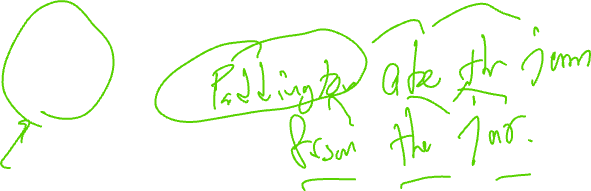 Paddington ate the jam
from the jar.